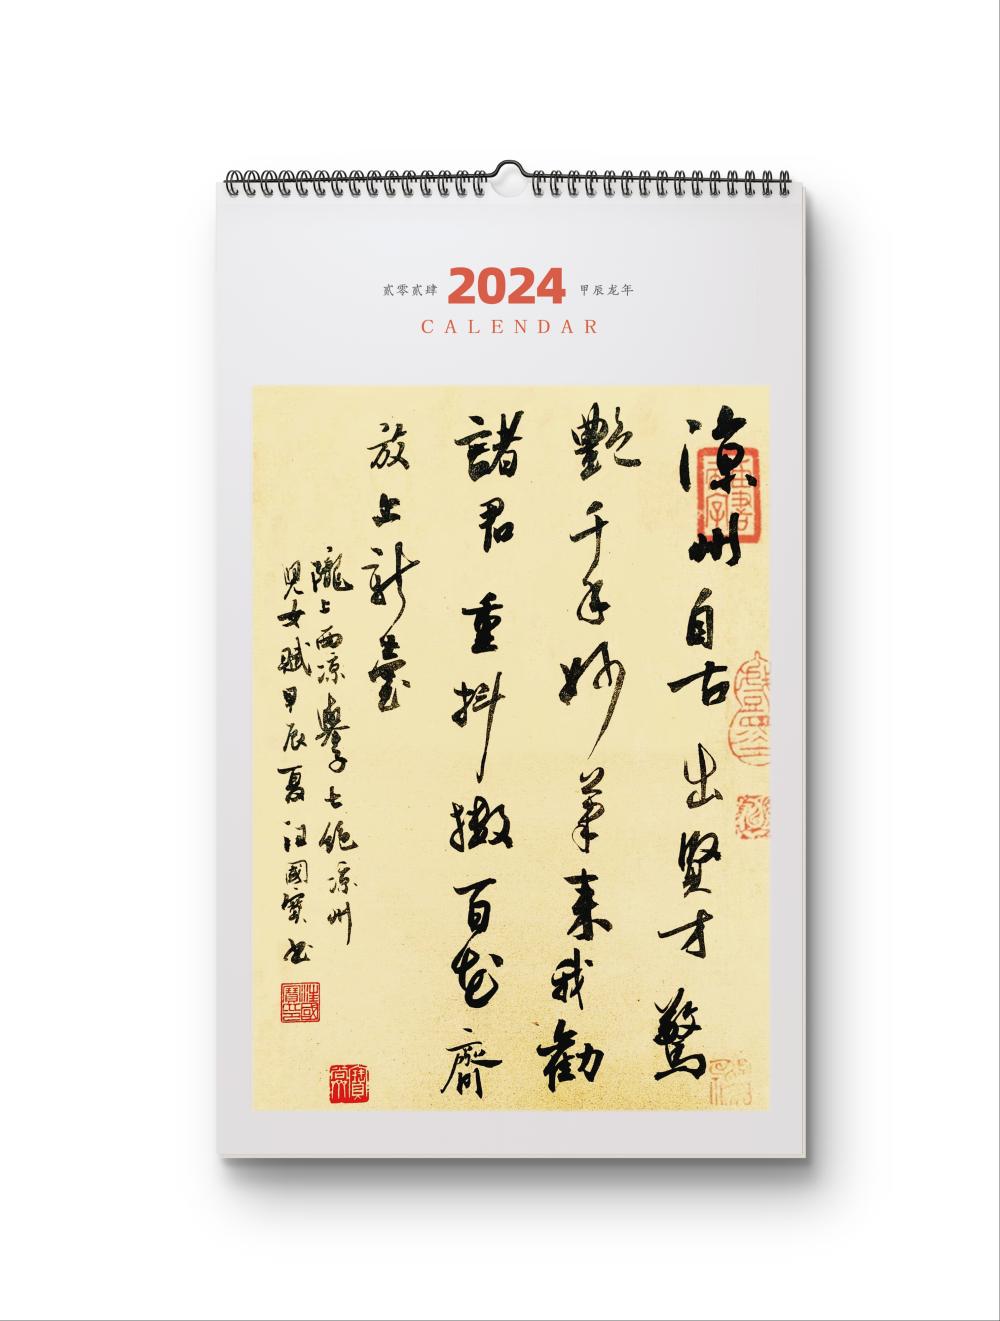 贰零贰肆 2024 甲辰龙年
CALENDAR
凉州自古出賢才驚
艷千年妙筆来我勸
諸君重抖擞百花齊
放上新臺
隴上西凉學子七绝凉州
兒女赋甲辰夏汪國寳书
汪國寶印